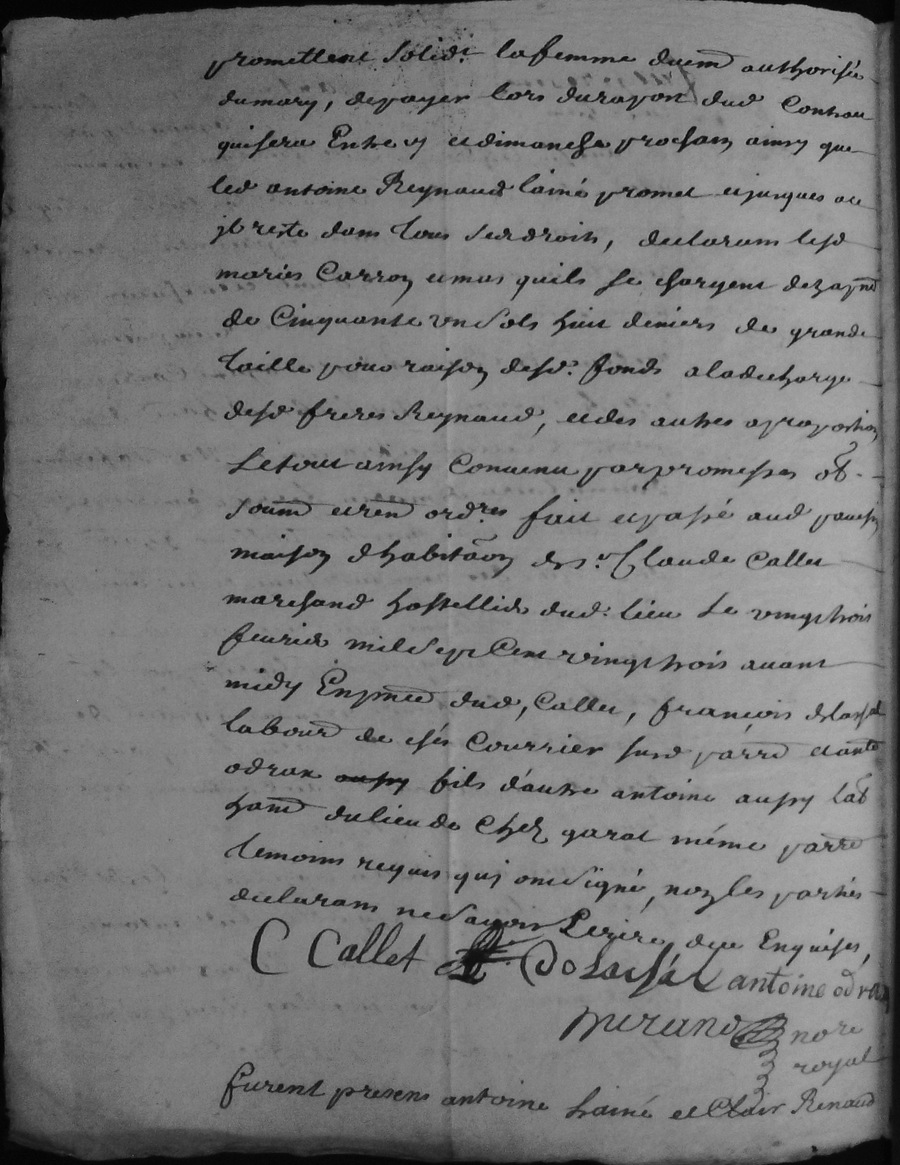 promettent solidt. la femme duemt authorisée
dumary, depayer lors durapor dud Contrau
quisera Entre y et dimanche prochain ainsy que
led antoine Reynaud l'ainé promet et jusques a ce
jl reste dans tous ses droits, declarans lesd
mariés Carron qu'ils se chargent
de Cinquante un sols huit deniers de grande
taille pour raison desd. fonds aladecharge
desd freres Reynaud, et des autres aproportion
Le tout ainsy Convenu par promesses ob.
soumd et rend ordres fait et passé aud
maison d'habitaon du sr. Claude Callet
marchand hostellier dud. lieu Le vingt trois
feurier mil sept Cent vingt trois auant
midy En pnce dud, Callet, françois
labour de chés Courrier susd parre et ante
odran aussy fils d'autre antoine aussy lab
hant dulieu de Chez garat même parre
temoins requis qui ont signé, non les parties
declarans ne sauoir Lecrire de ce Enquises,
C Callet Dolaissal antoine odran
Merand nore
royal
furent presens antoine lainé et Clair Renaud